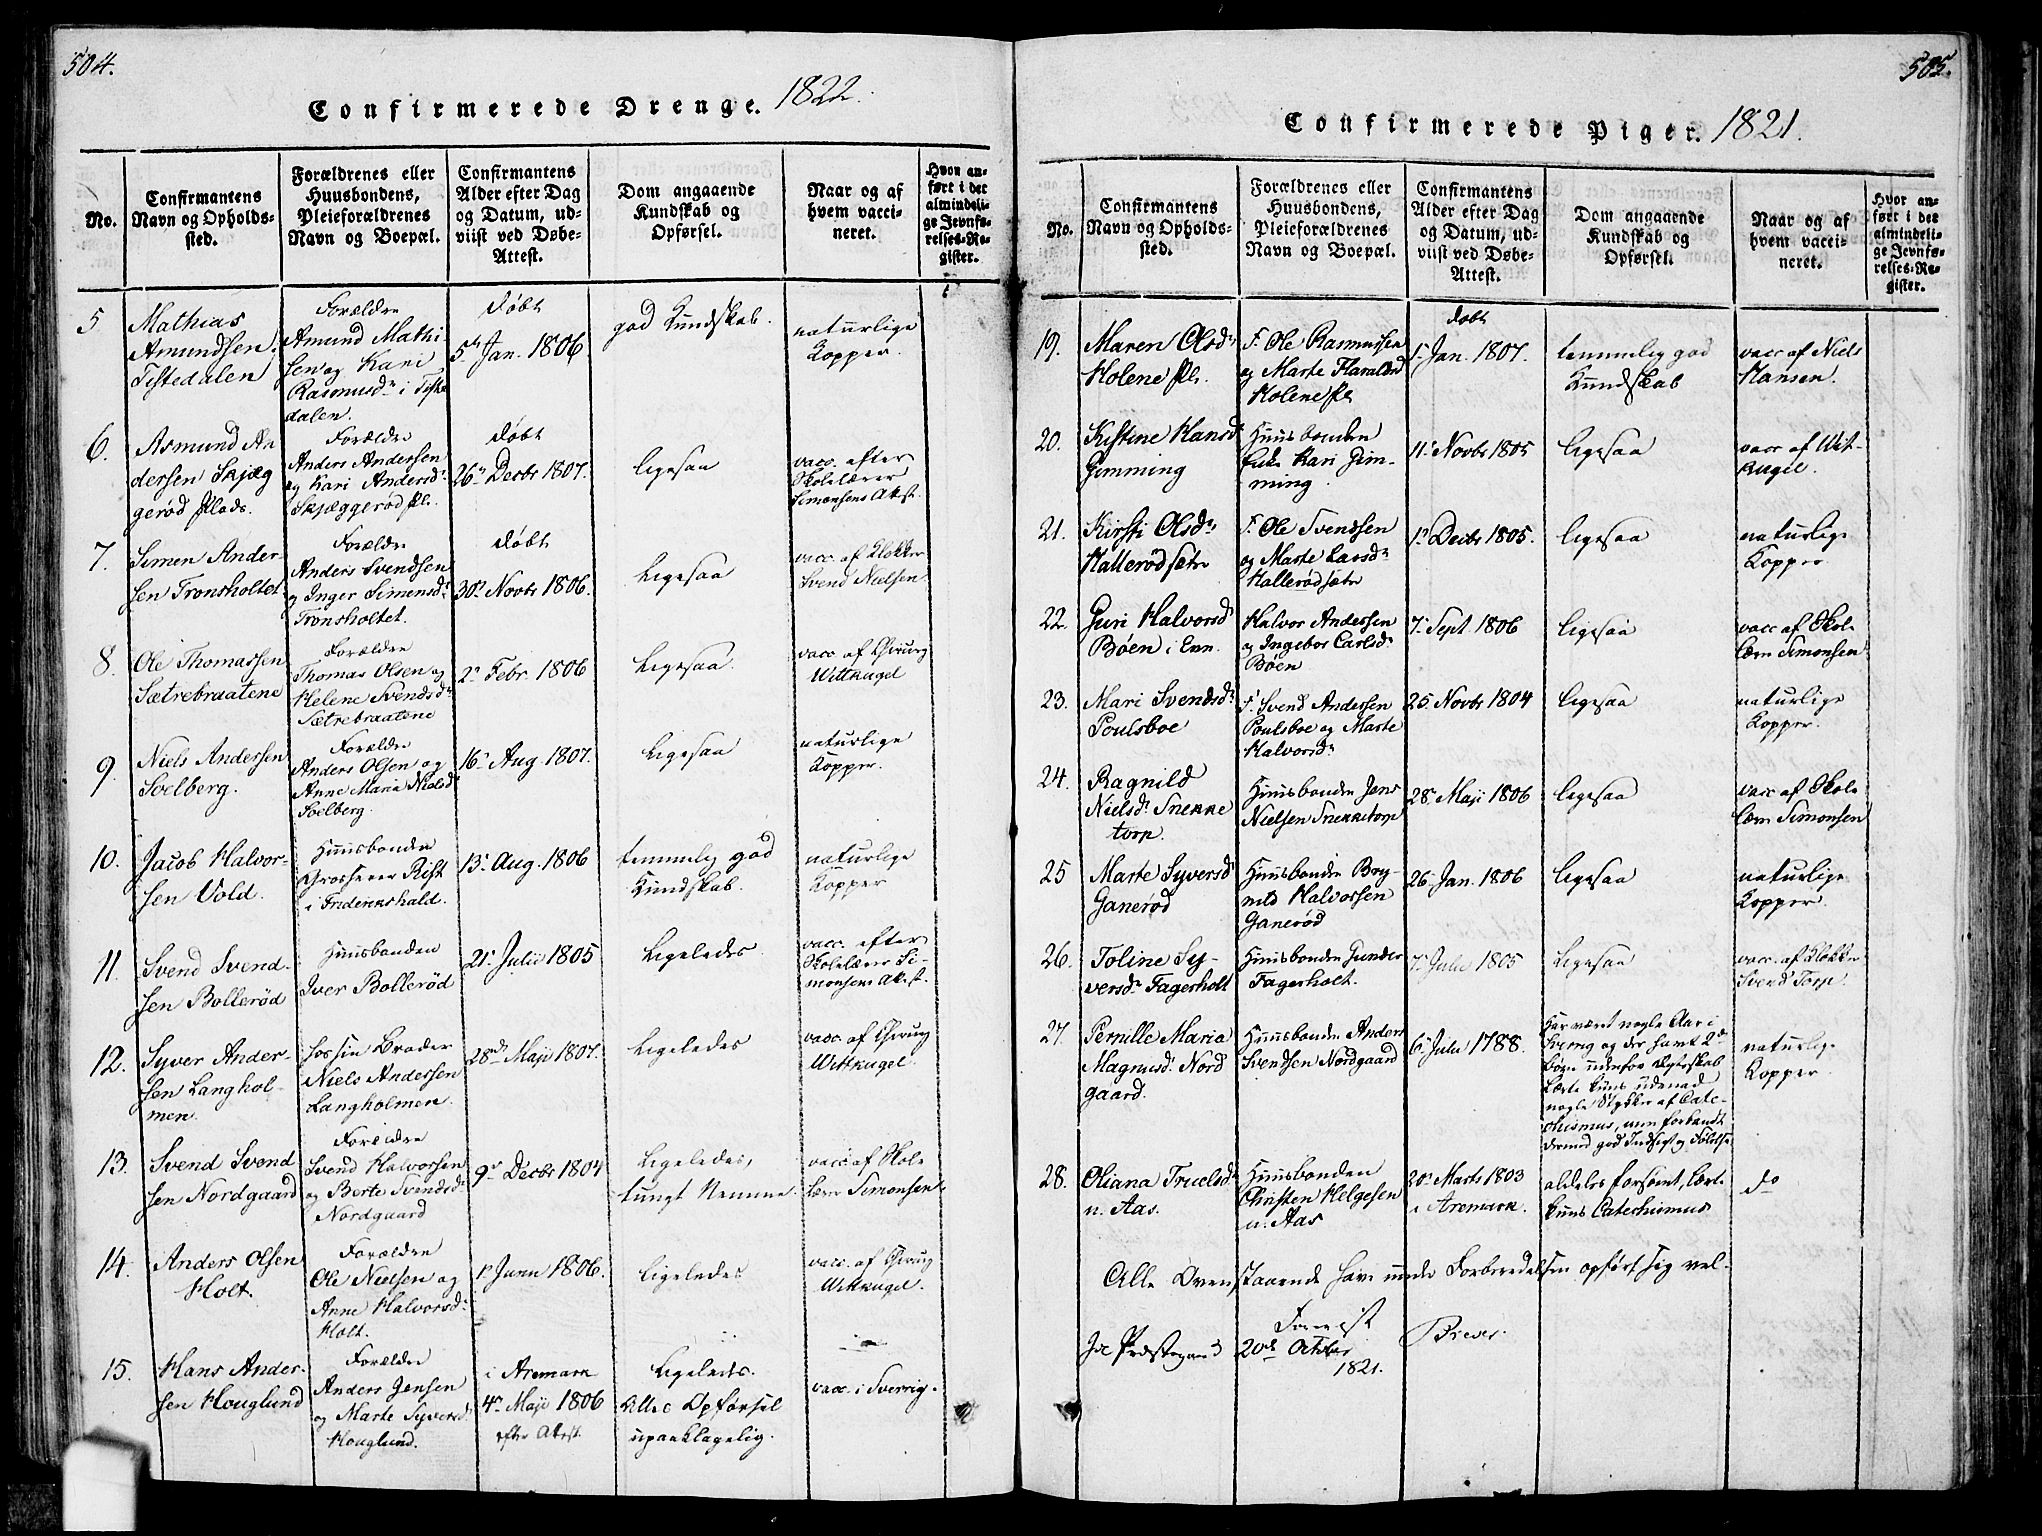 504.
Confirmerede Drenge. 1822.
No.
Confirmantens Navn og Opholdssted.
Forældrenes eller Huusbondens, Pleieforældrenes Navn og Boepæl.
Confirmantens Alder efter Dag og Datum, udviist ved Døbe-Attest.
Dom angaaende Kundskab og Opførsel.
Naar og af hvem vaccineret.
Hvor anført i det almindelige Jevnførelses-Register.
5
Mathias
Amundsen,
Tistedalen
Forældre
Amund Mathi-
sen og Kari
Rasmusdr i Tiste
dalen.
døbt
5te Jan. 1806.
god Kundskab.
naturlige
Kopper.
6.
Asmund An
dersen Skjæg
gerød Plads.
Forældre
Anders Andersen
og Kari Andersdr
Skjæggerød Pl.
døbt
26de Decbr 1807.
ligesaa
vacc. efter
Skolelærer
Simonsens Attest.
7.
Simen Ander-
sen Tronsholtet
Forældre
Anders Svendsen
og Inger Simensdr
Tronsholtet.
døbt
30te Novbr 1806.
Ligesaa
vacc. af Klokker
Svend Nielsen.
8.
Ole Thomassen
Sætrebraatene
Forældre
Thomas Olsen og
Helene Svendsdr
Sætrebraatene
2den Febr. 1806
Ligesaa.
vacc. af Chirurg
Wittkugel
9.
Niels Andersen
Solberg.
Forældre
Anders Olsen og
Anne Maria Nielsdr
Solberg.
16de Aug. 1807.
Ligesaa
naturlige
Kopper.
10.
Jacob Halvor-
sen Vold.
Huusbonden
Grosserer Rist
i Friderikshald.
13de Aug. 1806
temmelig god
Kundskab.
naturlige
Kopper
11.
Svend Svend-
sen Bollerød
Huusbonden
Iver Bollerød
21de Julii 1805
Ligeledes
vacc. efter
Skolelærer Si-
monsens Attest.
12.
Syver Ander-
sen Langhol-
men.
hos sin Broder
Niels Andersen
Langholmen.
28nde Maji 1807.
Ligeledes
vacc. af Chirurg
Wittkugel.
13.
Svend Svend
sen Nordgaard
Forældre
Svend Halvorsen
og Berte Svendsdr
Nordgaard
9de Decbr 1804
Ligeledes,
tungt Nemme.
vacc. af Skole
lærer Simonsen.
14.
Anders Olsen
Holt.
Forældre
Ole Nielsen og
Anne Halvorsdr
Holt.
1te Junii 1806.
Ligeledes
vacc. af Chirurg
Wittkugel.
15.
Hans Ander-
sen Houglund
Forældre
Anders Jensen
og Marte Syversdr
Houglund.
i Aremark
4de Maji 1806
efter Attest.
Ligeledes.
Alles Opførsel
upaaklagelig.
vacc. i Sverrig.
505.
Confirmerede Piger. 1821.
No.
Confirmantens Navn og Opholdssted.
Forældrenes eller Huusbondens, Pleieforældrenes Navn og Boepæl.
Confirmantens Alder efter Dag og Datum, udviist ved Døbe-Attest.
Dom angaaende Kundskab og Opførsel.
Naar og af hvem vaccineret.
Hvor anført i det almindelige Jevnførelses-Register.
19.
Maren Olsdr
Holene Pl.
F. Ole Rasmussen
og Marte Haraldsdr
Holene Pl
døbt
1te Jan. 1807.
temmelig god
Kundskab
vacc af Niels
Hansen.
20.
Kistine Hansdr
Gimming
Huusbonden
Enke Kari Gim-
ming
11te Novbr 1805
ligesaa
vacc af Wit-
kugel
21.
Kirsti Olsdr
Hallerødsætr
F. Ole Svendsen
og Marte Larsdr
Hallerødsætr
1te Decbr 1805.
ligesaa
naturlige
Kopper
22.
Guri Halvorsdr
Bøen i Enn.
Halvor Andersen
og Ingebor Carlsdr
Bøen
7de Sept 1806
ligesaa
vacc af Skole
lærer Simonsen
23.
Mari Svendsdr
Poulsboe
F. Svend Andersen
Poulsboe og Marte
Halvorsdr
25 Novbr 1804
ligesaa
naturlige
Kopper.
24.
Ragnild
Nielsdr Snekke
torp.
Huusbonden Jens
Nielsen Snekketorp
28de Maji 1806
ligesaa
vacc af Skole
lærer Simonsen
25
Marte Syversdr
Ganerød
Huusbonden Bry-
nild Halvorsen
Ganerød
26 Jan. 1806
ligesaa
naturlige
Kopper.
26.
Toline Sy-
versdr Fagerholt
Huusbonden Gunder
Fagerholt.
7de Julii 1805
ligesaa
vacc. af Klokker
Svend Torp.
27.
Pernille Maria
Magnusdr Nord
gaard.
Huusbonden Anders
Svendsen Nordgaard
6te Julii 1788.
Har været nogle Aar i
Sverrig og der havt 2de
Børn udenfor Ægteskab
Lærte kuns udenad
nogle Stykker af Cate-
chismus, men forbandt
dermed god Indsigt og Følelse
naturlige
Kopper
28.
Oliana Truelsdr
n. Aas.
Huusbonden
Christen Helgesen
n. Aas
20de Marts 1803
i Aremark.
aldeles forsømt, lærte
kuns Catechismus
do
Alle Ovenstaaende have under Forberedelsen opført sig vel.
Id Præstegaard 20de October 1821.